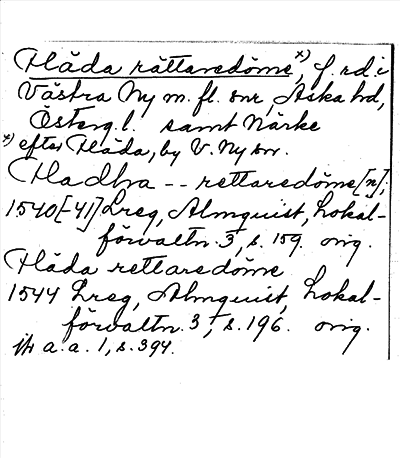 Håda rättaredöme x), f. rd. i
Västra Ny m. fl. snr, Aska hd,
Österg. l. samt Närke
x) efter Håda, by V. Ny sn.
Hadha -- rettaredöme[n],
1540[-41] Lreg, Almquist, Lokal-
förvaltn. 3, s. 159. orig.
Håda rettaredöme
1544 Lreg, Almquist, Lokal-
förvaltn. 3, s. 196. orig.
a. a. 1, s. 394.